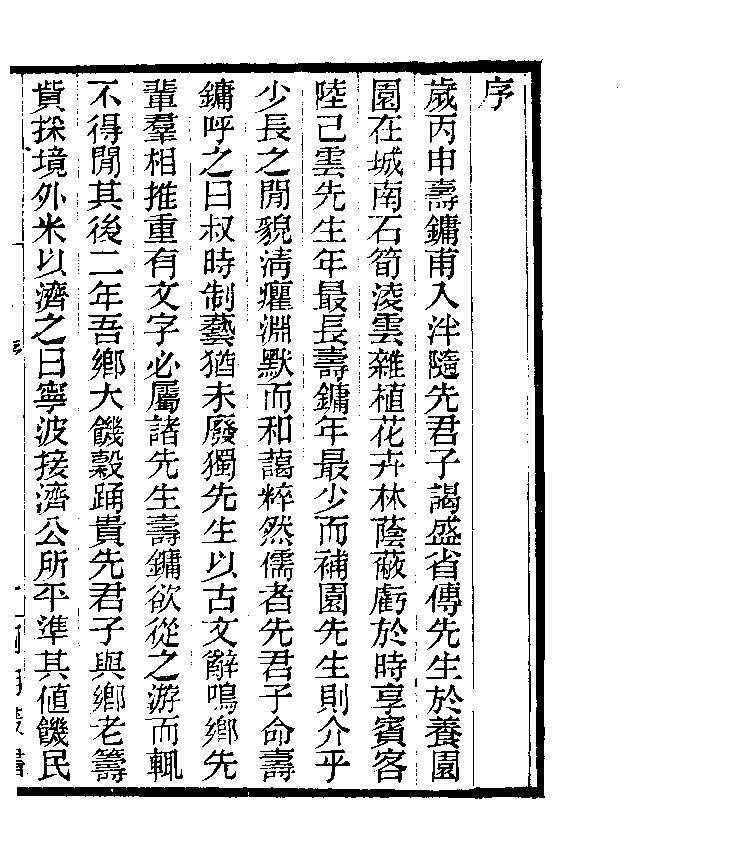 序
歲丙申壽鏞甫入泮隨先君子謁盛省傳先生於養園
園在城南石筍淩雲雜植花卉林蔭蔽虧於時享賓客
陸己雲先生年最長壽鏞年最少而補園先生則介乎
少長之閒貌淸癯淵默而和藹粹然儒者先君子命壽
鏞呼之曰叔時制藝猶未廢獨先生以古文辭鳴鄉先
輩羣相推重有文字必屬諸先生壽鏞欲從之游而輒
不得閒其後二年吾鄉大饑穀踊貴先君子與鄉老籌
貲採境外米以濟之曰寧波接濟公所平準其値饑民